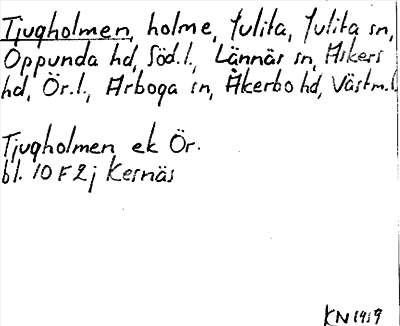 Tjugholmen, holme, Julita, Julita sn,
Oppunda hd, Söd.l., Lännäs sn, Askers
hd, Ör.l., Arboga sn, Åkerbo hd, Västm.l.
Tjugholmen ek Ör.
bl. 10 F 2 j Kesnäs
KN 1959